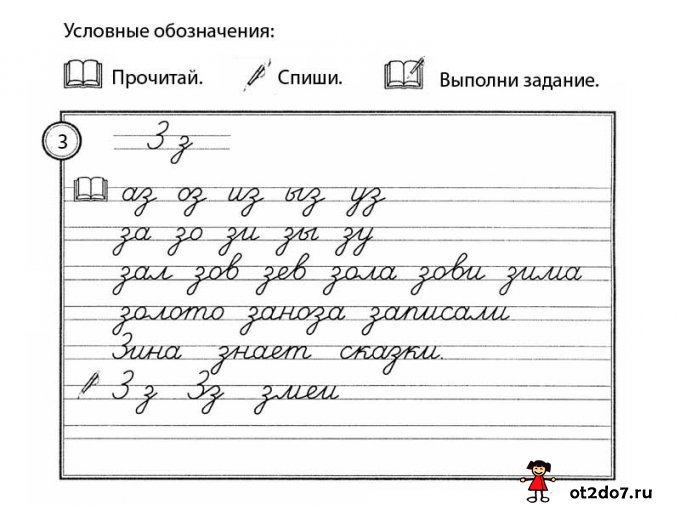 Условные обозначения:
Прочитай. Спиши. Выполни задание.
3 З з
аз оз из ыз уз
за зо зи зы зу
зал зов зев зола зови зима
золото заноза записали
Зина знает сказки.
З з Зз змеи
ot2do7.ru